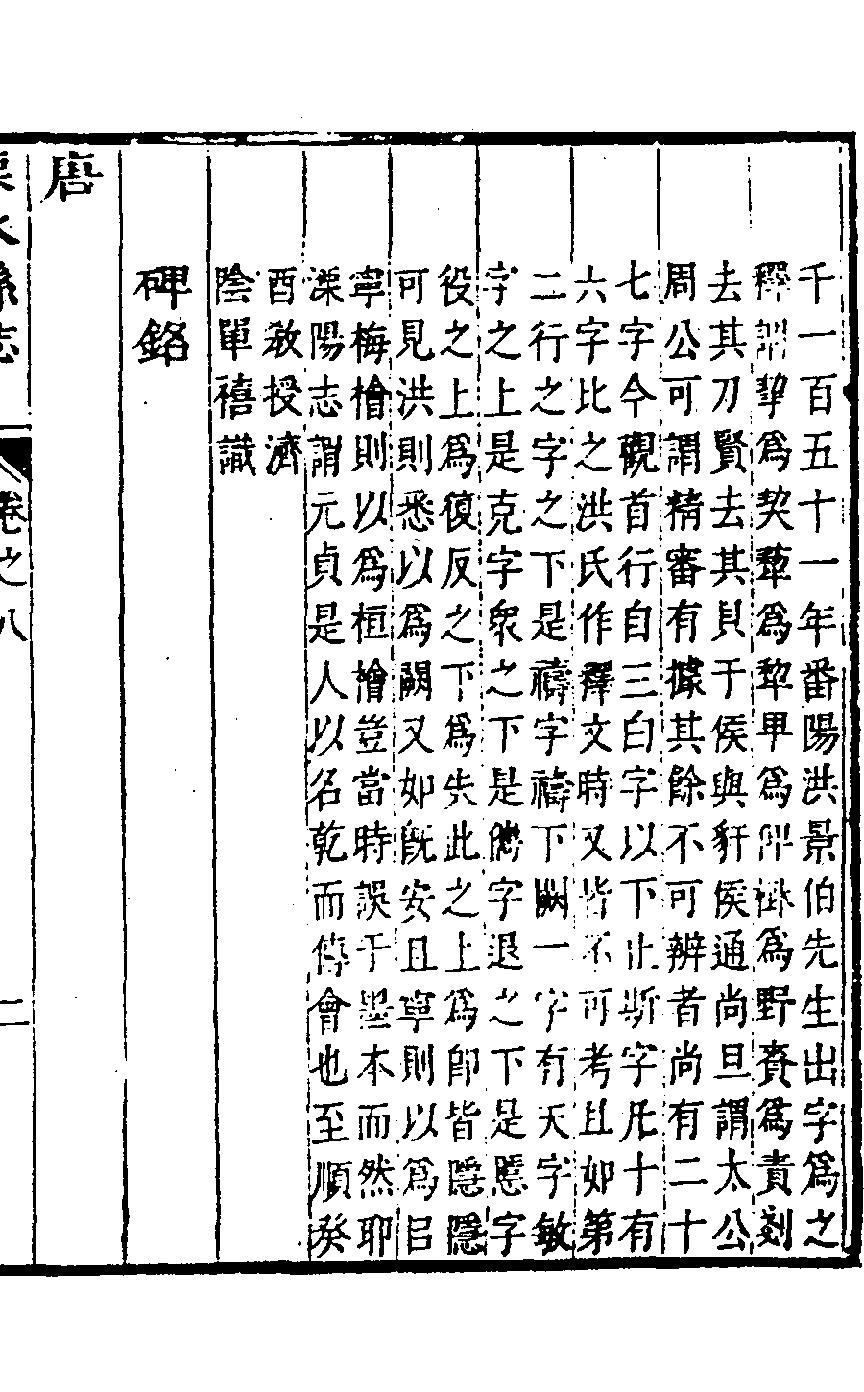 千一百五十一年番陽洪景伯先生出字爲之
釋謂犂爲契䔣爲犂甲爲𠦑𣝗爲野賚爲責剡
去其刀賢去其貝于侯與豻侯通尚旦謂太公
周公可謂精審有據其餘不可辨者尚有二十
七字今觀首行自三白字以下止斯字凡十有
六字比之洪氏作釋文時又皆不可考且如第
二行之字之下是禱字禱下闕一字有天字敏
字之上是克字衆之下是儁字退之下是慝字
役之上爲復反之下爲失此之上爲卽皆隱隱
可見洪則悉以爲闕又如旣安且寧則以爲𠮦
寧梅檜則以爲桓檜豈當時誤于墨本而然耶
溧陽志謂元貞是人以名乾而傅會也至順癸
酉敎授濟
陰單禧識
碑銘
唐
溧水縣志
卷之八
二